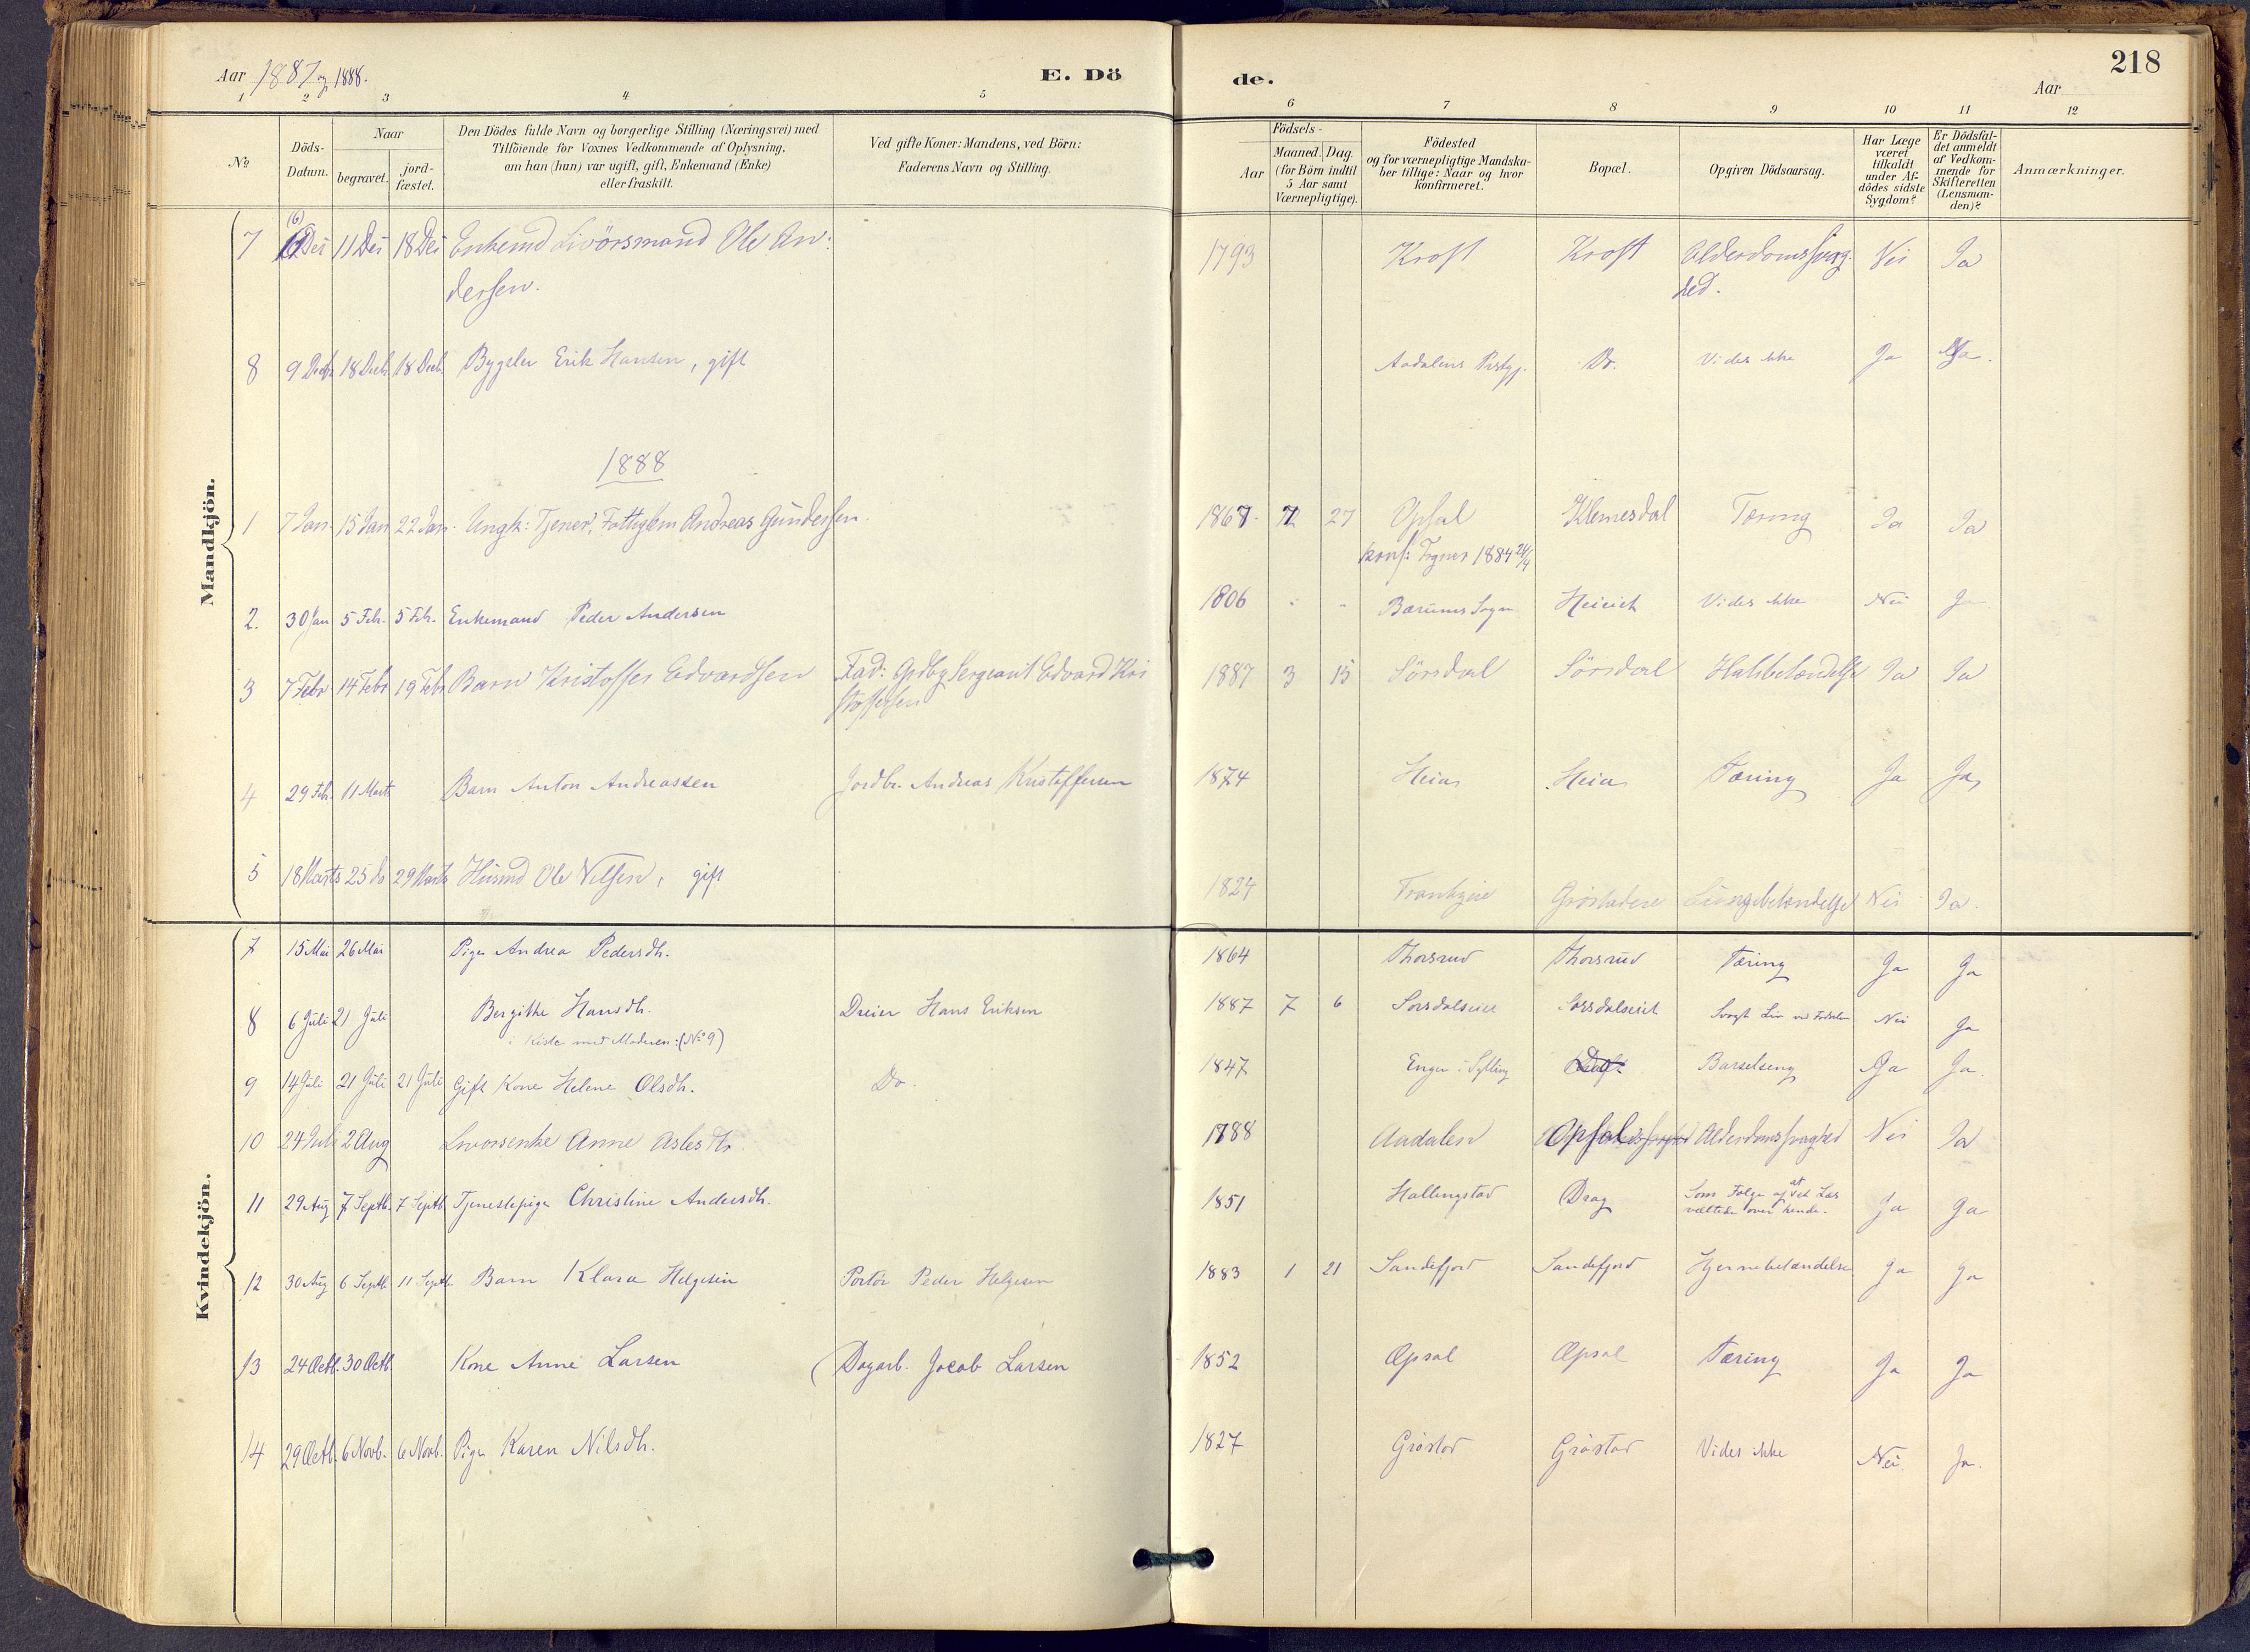 Aar 1887 og 1888.
E. Dö
de.
218
Aar
1 2 3 4 5 6 7 8 9 10 11 12
No
Döds-
Datum.
Naar
begravet.
jord-
fæstet.
Den Dödes fulde Navn og borgerlige Stilling (Næringsvei) med
Tilföiende for Voxnes Vedkommende af Oplysning,
om han (hun) var ugift, gift, Enkemand (Enke)
eller fraskilt.
Ved gifte Koner: Mandens, ved Börn:
Faderens Navn og Stilling.
Födsels-
Aar
Maaned. Dag.
(for Börn indtil
5 Aar samt
Værnepligtige).
Födested
og for værnepligtige Mandska-
ber tillige: Naar og hvor
konfirmeret.
Bopæl.
Opgiven Dödsaarsag.
Har Læge
været
tilkaldt
under Af-
dödes sidste
Sygdom?
Er Dödsfal-
det anmeldt
af Vedkom-
mende for
Skifteretten
(Lensman-
den)?
Anmærkninger.
Mandkjön.
7 (6) Des 11 Des 18 Des Enkemd Livörsmand Ole An: 1793 Kroft Kroft Alderdomssvag- Nei Ja
dersen. hed.
8 9 Decb. 18 Decb. 18 Decb. Bygsler Erik Hansen, gift Aadalens Præstgj. Do. Vides ikke Ja Ja.
1888
1 7 Jan. 15 Jan 22 Jan. Ungk: Tjener, Fattiglem Andreas Gundersen. 1867 12 27 Opsal Klemesdal Tæring Ja Ja
konf: Tegner 1884
2. 30 Jan 5 Feb. 5 Feb. Enkemand Peder Andersen 1806 - - Bærums Sogn Heieich Vides ikke Nei Ja
3 7 Febr 14 Febr 19 Febr Barn Kristoffer Edvardsen Fad: Grdbg Sergeant Edvard Kri 1887 3 15 Sörsdal Sörsdal Halsbetændelse Ja Ja
stoffersen
4 29 Feb. 11 Marts Barn Anton Andreassen Jordbr. Andreas Kristoffersen 1874 Heia Heia Tæring Ja Ja
5 18 Marts 25 do 29 Marts Husmd Ole Nilsen, gift 1824 Gröstadeie Lungebetændelse Nei Ja.
Kvindekjön.
7 15 Mai 26 Mai Pige Andrea Pedersdt. 1864 Thorsrud Thorsrud Tæring Ja Ja
8 6 Juli 21 Juli Bergithe Hansdt. Dreier Hans Eriksen 1887 7 6 Sorsdalseiet Sorsdalseiet Svagt Liv ved Fødselen Nei Ja
i Kiste med Moderen: (No 9)
9 14 Juli 21 Juli 21 Juli Gift Kone Helene Olsdt. Do. 1847 Enger i Sylling Barselseng Ja Ja.
10 24 Juli 2 Aug Livorsenke Anne Aslesdtr. 1788 Aadalen Opsal Alderdomssvaghed Nei Ja
11 29 Aug 7 Septb. 7 Septb. Tjenestepige Christine Andersdt. 1851 Hallingstad Drag Som Følge af at Ved Læs Ja Ja
væltede over hende.
12 30 Aug 6 Septb. 11 Septb. Barn Klara Helgesen Portör Peder Helgesen 1883 1 21 Sandefjord Sandefjord Hjernebetændelse Ja Ja
13 24 Octb. 30 Octb. Kone Anne Larsen Dagarb. Jacob Larsen 1852 Opsal Opsal Tæring Ja Ja
14 29 Octb. 6 Novb. 6 Novb. Pige Karen Nilsdt. 1827 Gröstad Gröstad Vides ikke Nei. Ja.